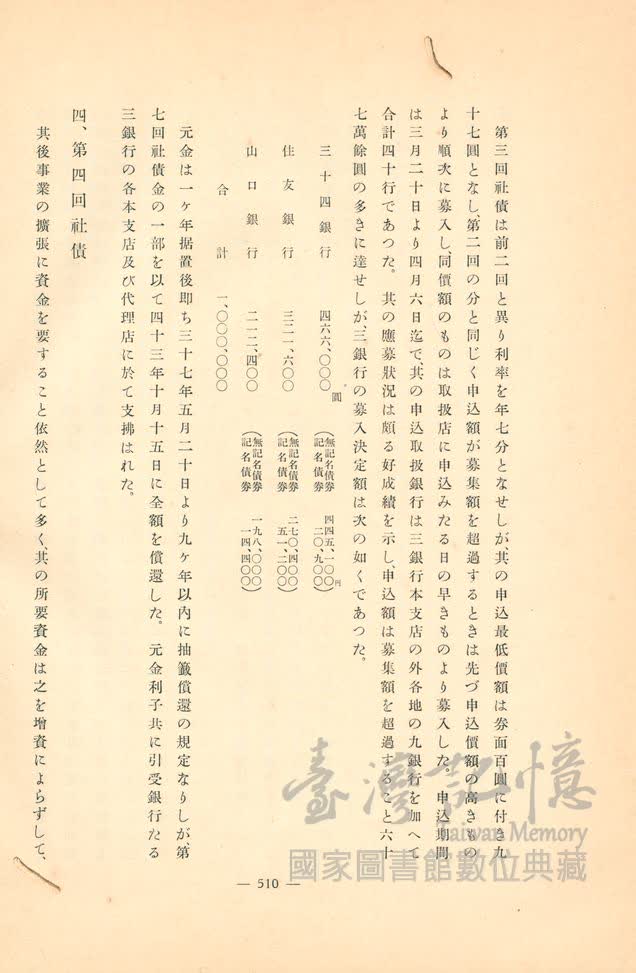 第三回社債は前二回と異り利率を年七分となせしが、其の申込最低價額は券面百圓に付き九
十七圓となし、第二回の分と同じく申込額が募集額を超過するときは先づ申込價額の高きもの
より順次に募入し、同價額のものは取扱店に申込みたる日の早きものより募入した。申込期間
は三月二十日より四月六日迄で、其の申込取扱銀行は三銀行本支店の外各地の九銀行を加へて
合計四十行であつた。其の應募狀況は頗る好成績を示し、申込額は募集額を超過すること六十
七萬餘圓の多きに達せしが、三銀行の募入決定額は次の如くであつた。
三十四銀行 四六六、〇〇〇圓 (無記名債券 四四五、一〇〇円
記名債券 二〇、九〇〇)
住友銀行 三二一、六〇〇 (無記名債券 二七〇、四〇〇
記名債券 五一、二〇〇)
山口銀行 二一二、四〇〇 (無記名債券 一九八、〇〇〇
記名債券 一四、四〇〇)
合計 一、〇〇〇、〇〇〇
元金は一ケ年据置後即ち三十七年五月二十日より九ケ年以內に抽籤償還の規定なりしが、第
七回社債金の一部を以て四十三年十月十五日に全額を償還した。元金利子共に引受銀行たる
三銀行の各本支店及び代理店に於て支拂はれた。
四、第四回社債
其後事業の擴張に資金を要すること依然として多く、其の所要資金は之を增資によらずして、
臺灣記憶
Taiwan Memory
國家圖書館數位典藏
— 510 —